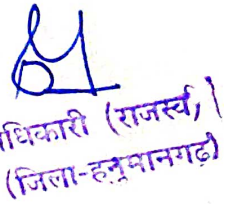 ाधिकारी (राजस्व)
(जिला-हनुमानगढ़)